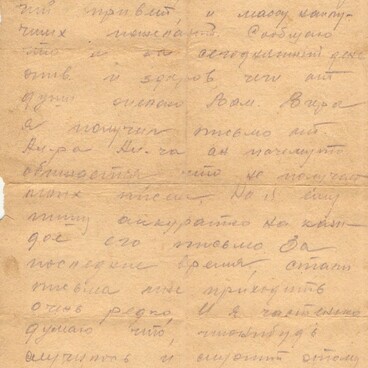 привет, и массу наилу-
чших пожеланий. Сообщаю
что и на сегодняшний день
жив и здоров чего от
души желаю Вам. Вчера
я получил письмо от
он почему то
обижается что не получает
моих писем Но я ему
пишу аккуратно на каж-
дое его письмо За
последнее время, стали
письма мне приходить
очень редко, И я частенько
думаю что, чтонибудь
случилось и